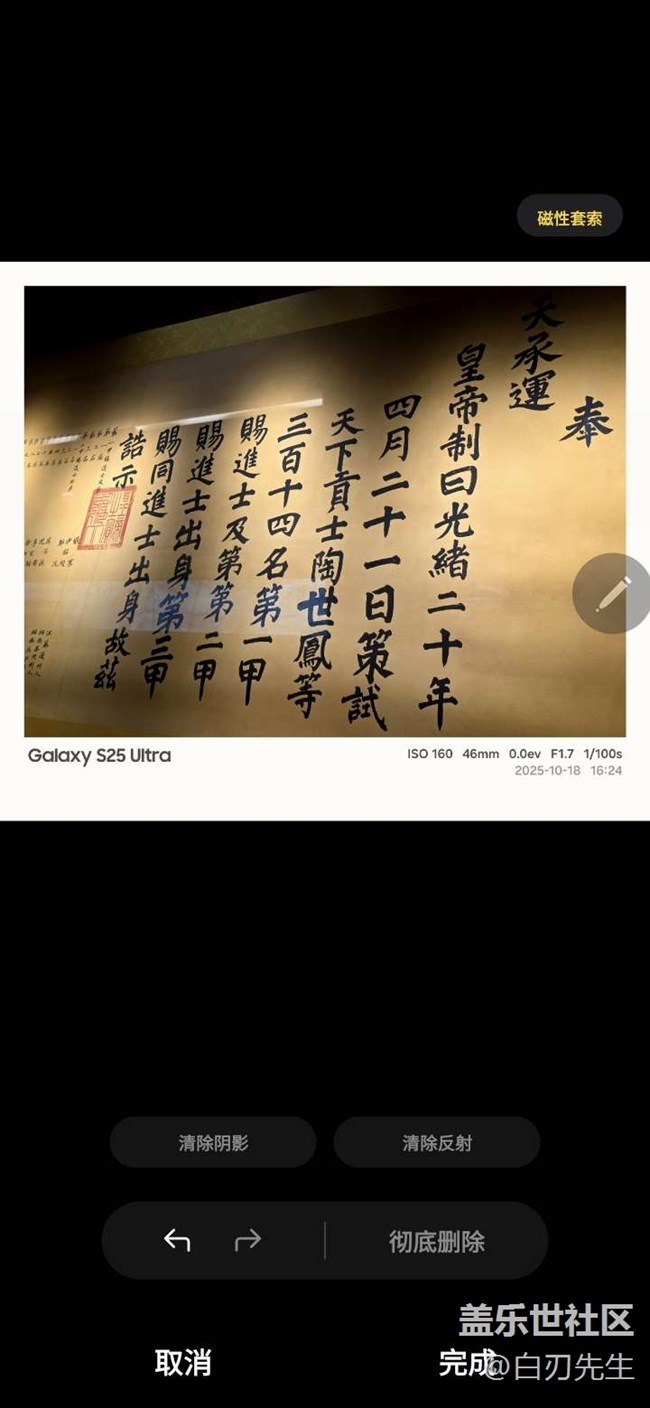 磁性套索
奉
天承運
皇帝制曰光緒二十年
四月二十一日策試
天下貢士陶世鳳等
三百十四名第一甲
賜進士及第第二甲
賜進士出身第三甲
賜同進士出身故茲
誥示
Galaxy S25 Ultra
ISO 160 46mm 0.0ev F1.7 1/100s
2025-10-18 16:24
清除阴影
清除反射
彻底删除
取消
完成
盖乐世社区
@白刃先生